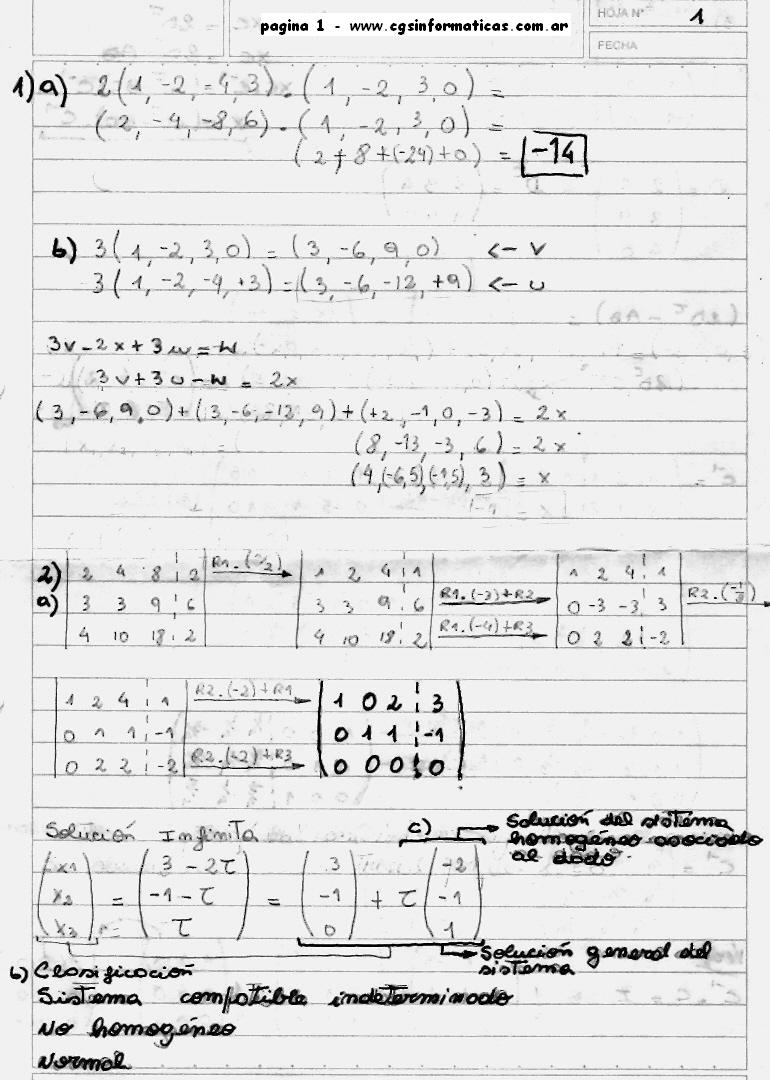 pagina 1 - www.cgsinformaticas.com.ar
HOJA Nº 1
FECHA
1) a) 2(1, -2, -4, 3) . (1, -2, 3, 0) =
(2, -4, -8, 6) . (1, -2, 3, 0) =
(2 + 8 + (-24) + 0) = -14
b) 3(1, -2, 3, 0) = (3, -6, 9, 0) <- v
3(1, -2, -4, +3) = (3, -6, -12, +9) <- u
3v - 2x + 3u = w
3v + 3u - w = 2x
(3, -6, 9, 0) + (3, -6, -12, 9) + (+2, -1, 0, -3) = 2x
(8, -13, -3, 6) = 2x
(4, (-6,5), (-1,5), 3) = x
2) 2 4 8 2 R1. 1 2 4 1 1 2 4 1
a) 3 3 9 6 3 3 9 6 R1.(-3)+R2 0 -3 -3 3 R2.(-1/3)
4 10 18 2 4 10 18 2 R1.(-4)+R3 0 2 2 -2
1 2 4 1 R2.(-2)+R1 1 0 2 3
0 1 1 -1 0 1 1 -1
0 2 2 -2 R2.(-2)+R3 0 0 0 0
Solución Infinita
c) Solución del sistema
homogéneo asociado
al dado.
x1 3 - 2τ 3 -2
x2 = -1 - τ = -1 + τ -1
x3 = τ 0 1
Solución general del
sistema
b) Clasificación
Sistema compatible indeterminado
No homogéneo
Normal